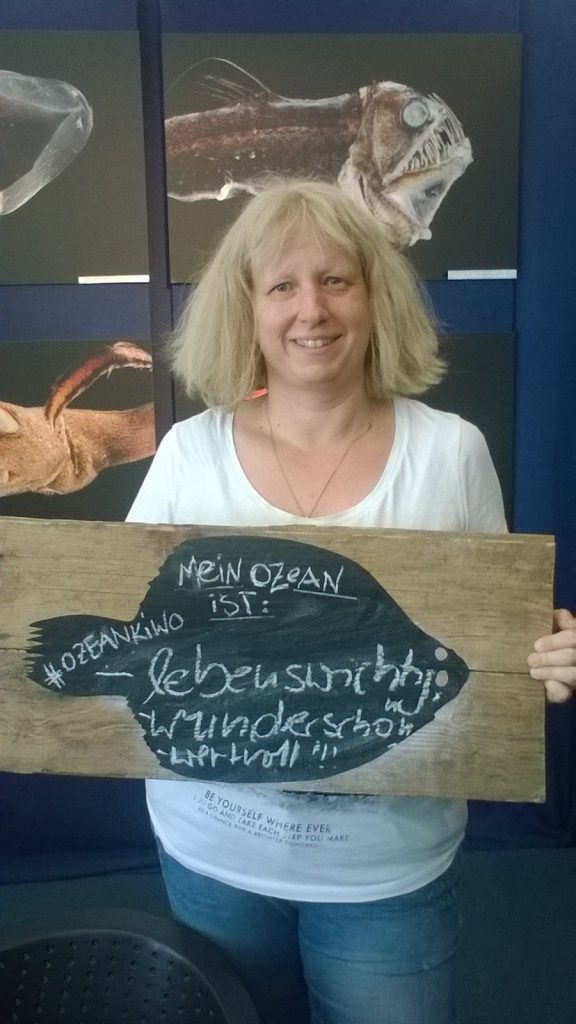 MEiN OZeAN
iST:
#OZEANKiWO
- lebenswichtig
- wunderschön
- wertvoll !!!
BE YOURSELF WHERE EVER
YOU GO AND TAKE EACH STEP YOU MAKE
AS A CHANCE FOR A BRIGHTER TOMORROW